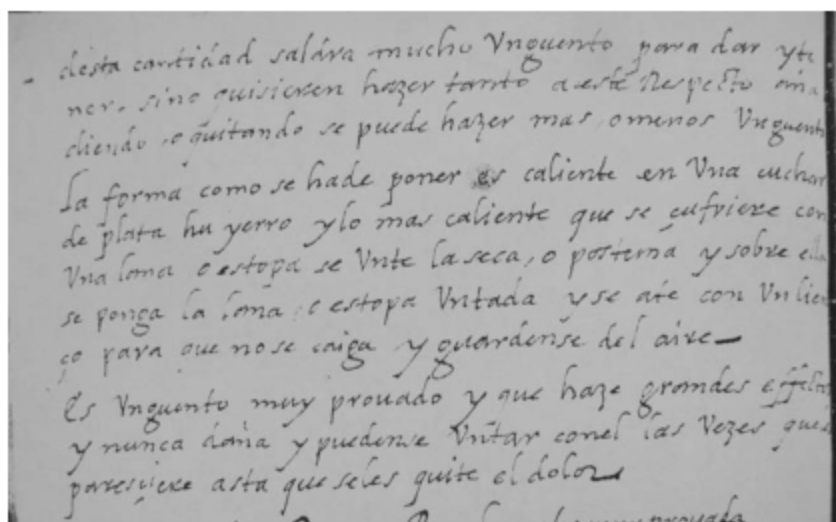 desta cantidad salára mucho Vnguento para dar y te
ner. sino quisieren hazer tanto a este Respecto aña
diendo, o quitando se puede hazer mas, o menos Vnguento
La forma como se hade poner es caliente en Vna cuchar
de plata hu yerro y lo mas caliente que se çufriere con
Vna lana o estopa se Vnte la seca, o posterna y sobre ella
se ponga la lana, o estopa Vntada y se ate con Vn lien
ço para que no se caiga y guardense del aire
Es Vnguento muy prouado y que haze grandes effecto
y nunca daña y puedense Vntar conel las Vezes que
paresçiere asta que seles quite el dolor
prouada